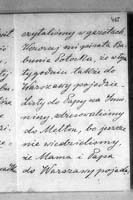 czytaliśmy w gazetach.
Wczoraj mi pisała Ba-
bunia Potocka, że w tym
tygodniu także do
Warszawy pojedzie.
Listy do Papy na Imie-
niny adresowaliśmy
do Melton, bo jeszcze
nie wiedzieliśmy,
że Mama i Papa
do Warszawy pojadą